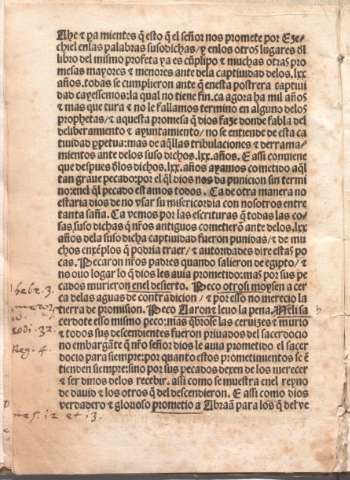 Ahe & ya mientes q̃ esto q̃ el señor nos promete por Eze-
chiel en las palabras susodichas / y enlos otros lugares ðl
libro del mismo profeta ya es cũplipo & muchas otras pro
mesas mayores & menores ante dela captiuidad delos.lxx
años.todas se cumplieron ante q̃ enesta postrera captiui
dad cayessemos:la qual no tiene fin.ca agora ha mil años
& mas que tura & no le fallamos termino en alguno delos
prophetas/& aquesta promesa q̃ dios faze donde fabla del
deliberamiento & ayuntamiento/no se entiende de esta ca
tiuidad ꝑpetua:mas de aq̃llas tribulaciones & derrama-
mientos ante delos suso dichos.lxx.años. E assi conuiene
que despues ðlos dichos.lxx. años ayamos cometido aq̃l
tan graue pecado:por el q̃l dios nos da punicion sin termi
no:enel q̃l pecado estamos todos. Ca de otra manera no
estaria dios de no vsar su misericordia con nosotros entre
tanta saña. Ca vemos por las escrituras q̃ todas las co-
sas suso dichas q̃ nr̃os antiguos cometierõ ante delos.lxx
años dela suso dicha captiuidad fueron punidas/& de mu
chos exẽplos q̃ podria traer/& autoridades dire estas po
cas. Pecaron nr̃os padres quando salieron de egipto/&
no ouo logar lo q̃ dios les auia prometido:mas por sus pe
cados murieron enel desierto. Peco otrosi moysen a cer
ca delas aguas de contradicion / & por esso no merecio la
tierra de promision. Peco Aaron & leuo la pena. Heli sa
cerdote esso mismo peco:mas q̃bose las ceruizes & murio
& todos sus descendientes fueron priuados del sacerdocio
no embargãte q̃ nr̃o señor dios le auia prometido el sacer
docio para siempre:por quanto estos prometimientos se ẽ
tienden siempre:sino por sus pecados dexen de los merecer
& ser dinos delos recebir. assi como se muestra enel reyno
de dauid & los otros q̃ del descendieron. E assi como dios
verdadero & glorioso prometio a Abraã para los q̃ del ve
3.
32.
Reg. 4.
et i3.